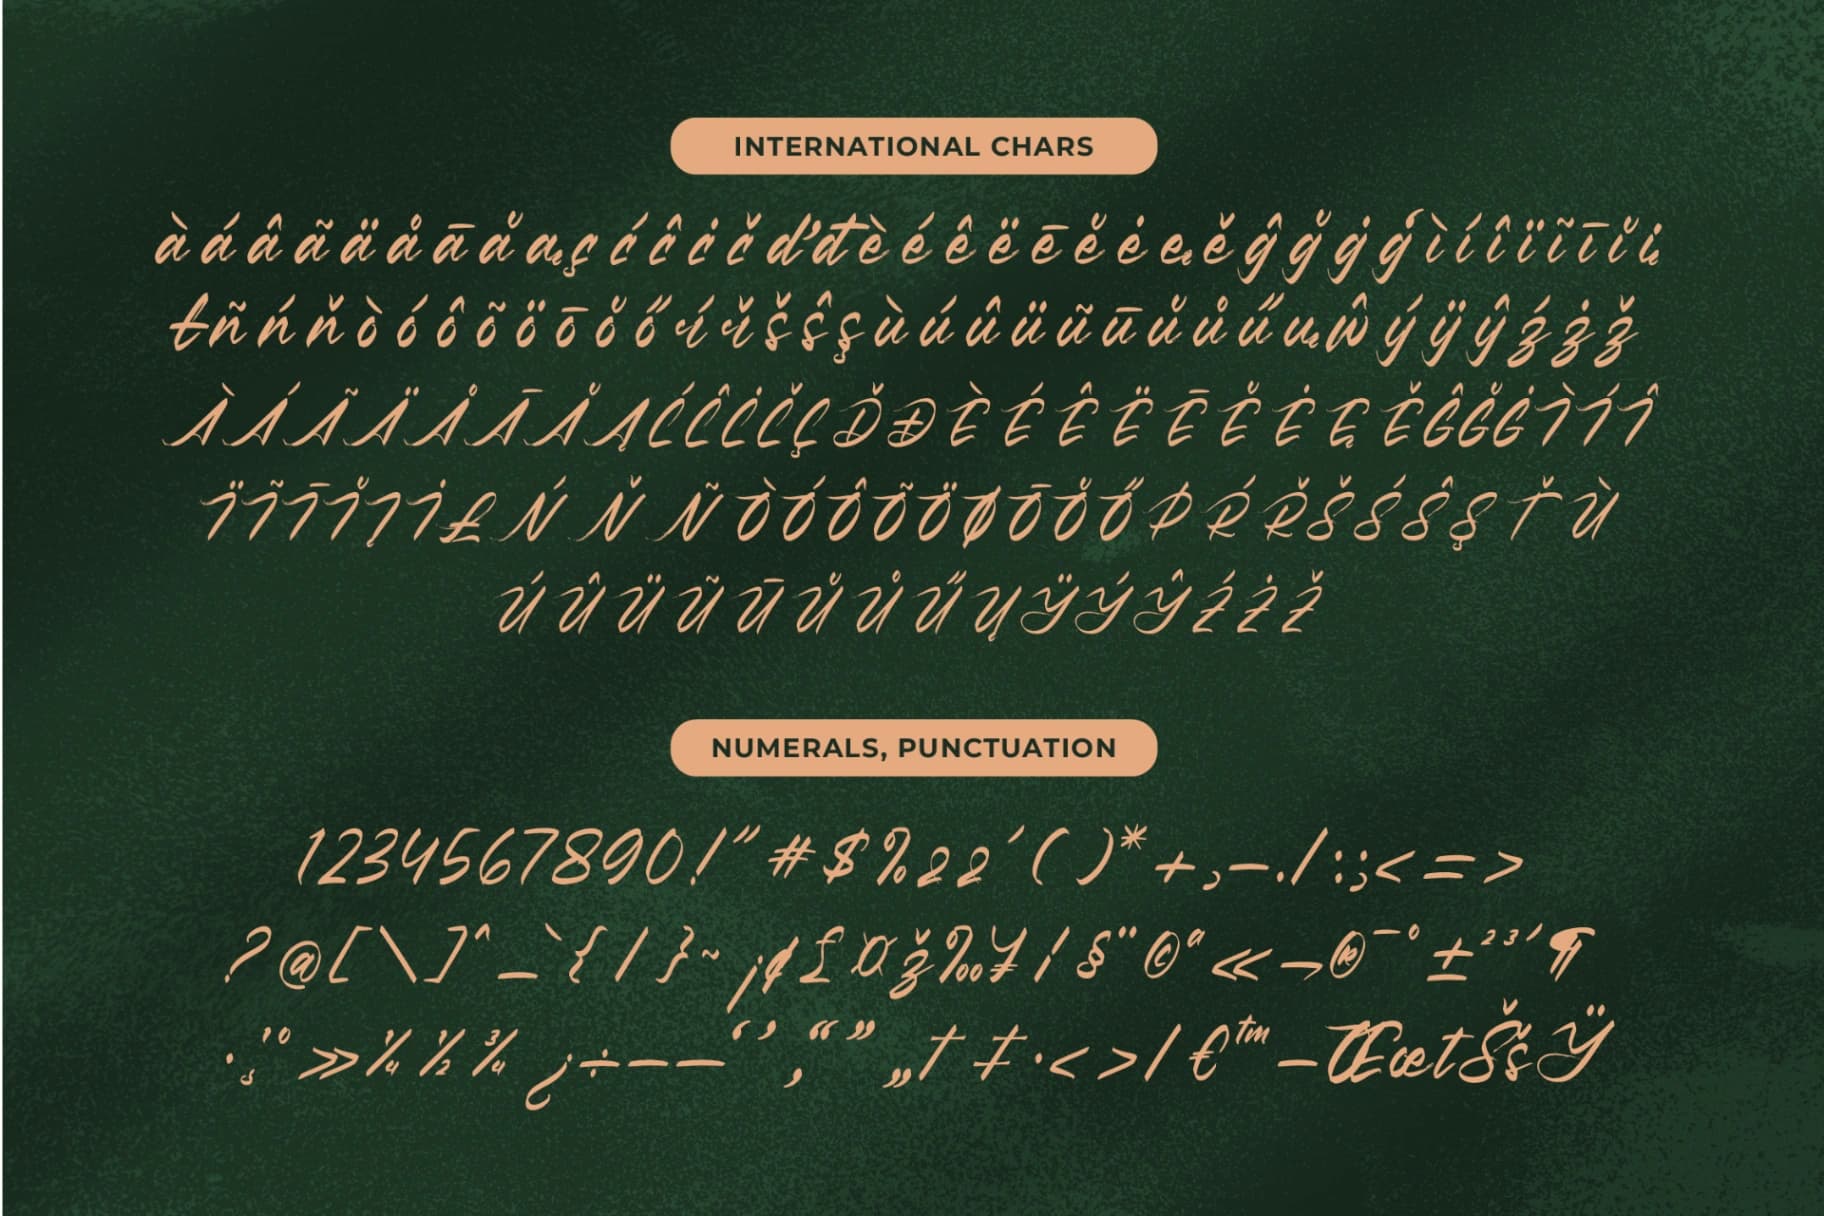 INTERNATIONAL CHARS
àáâãäåāăąçćĉċčďđèéêëēĕėęěĝğġģìíîïĩīĭį
łñńňòóôõöōŏőŕřšŝşùúûüũūŭůűųŵýÿŷźżž
ÀÁÃÄÅĀĂĄĆĈĊČÇĎĐÈÉÊËĒĔĖĘĚĜĞĠÌÍÎ
ÏĨĪĬĮİŁŃŇÑÒÓÔÕÖØŌŎŐÞŔŘŠŚŜŞŤÙ
ÚÛÜŨŪŬŮŰŲŸÝŶŹŻŽ
NUMERALS, PUNCTUATION
1234567890!"#$%&&'()*+,-./:;<=>
?@[\]^_`{|}~¡¢£¤ž‰¥¦§¨©ª«¬®¯°±²³´¶
·¸¹º»¼½¾¿÷–—‘’‚“”„†‡·<>/€™−ŒœtŠšŸ